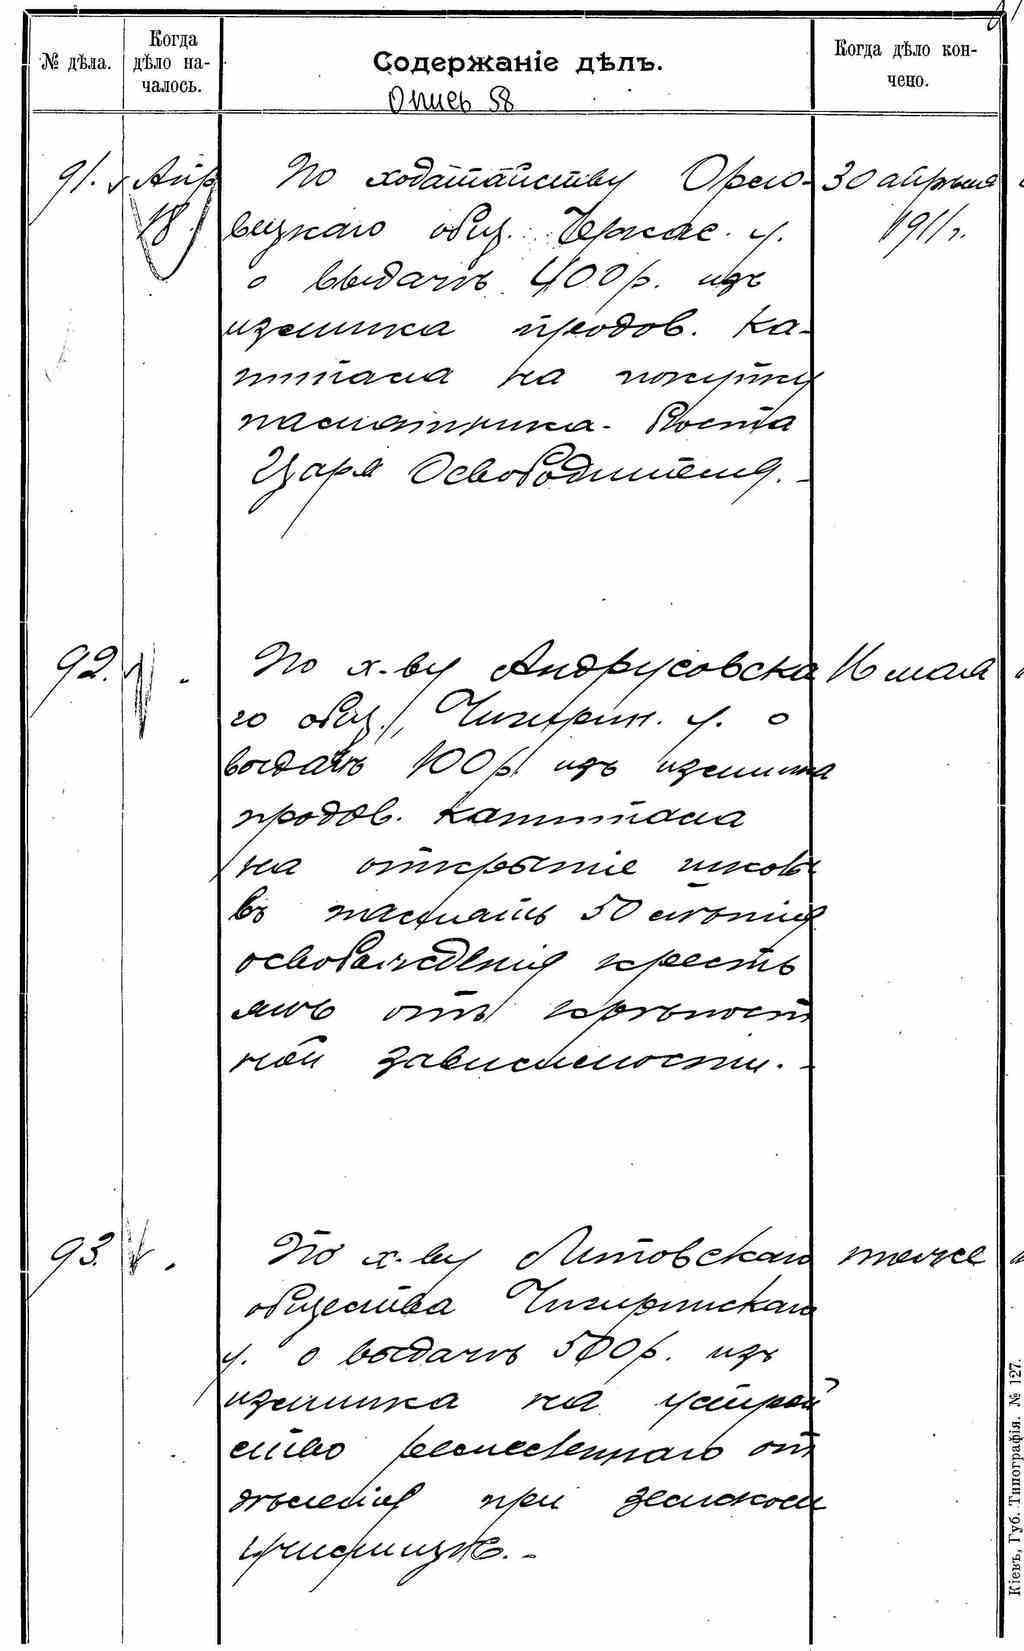 № дѣла.
Когда дѣло на-
чалось.
Содержаніе дѣлъ.
Опись 58
Когда дѣло кон-
чено.
91. Апр 18.
По ходатайству Орло-
вецкаго общ. Черкас. у.
о выдачѣ 400 р. изъ
излишка продов. ка-
питала на покупку
памятника - бюста
Царя Освободителя. -
30 апрѣля
1911 г.
92.
По х-ву Андрусовска
го общ., Чигирин. у. о
выдачѣ 100 р. изъ излишка
продов. капитала
на открытіе школы
въ память 50 лѣтія
освобожденія кресть
янъ отъ крѣпост
ной зависимости. -
16 мая
93.
По х-ву Литовскаго
общества Чигиринскаго
у. о выдачѣ 500 р. изъ
излишка на устрой
ство ремесленнаго от
дѣленія при земском
училищѣ. -
тоже
Кіевъ, Губ. Типографія. № 127.